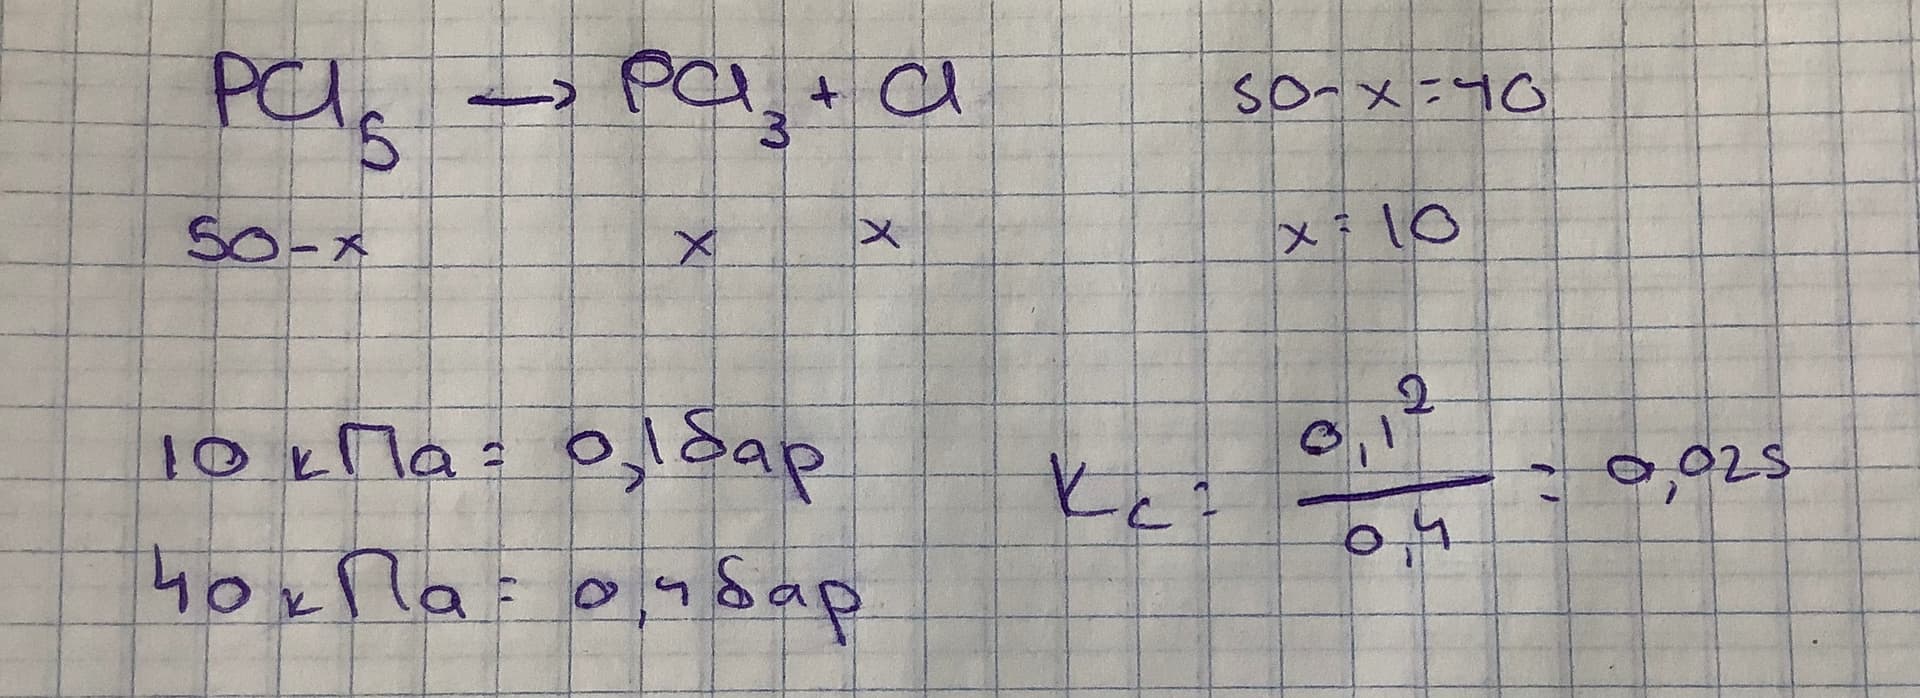 PCl₅ → PCl₃ + Cl
50-x x x
50-x=40
x=10
10 кПа = 0,1 бар
40 кПа = 0,4 бар
Kc = 0,1² / 0,4 = 0,025